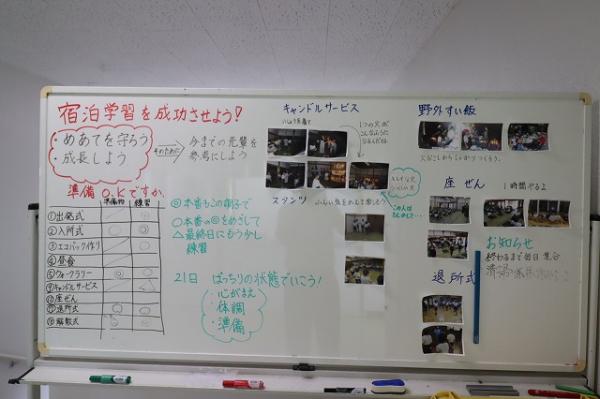 宿泊学習を成功させよう!
・めあてを守ろう
・成長しよう
そのために
今までの先輩を
参考にしよう
準備O.Kですか
準備物 練習
①出発式
②入所式
③エコバック作り
④昼食
⑤ウォークラリー
キャンドルサービス
座ぜん
退所式
解散式
◎本番もこの調子で
○本番の◎をめざして
△最終日にもう少し
練習
21日 ばっちりの状態でいこう!
・心がまえ
・体調
・準備
キャンドルサービス
1つの火が
こんなふうに
スタンツ
野外すい飯
座ぜん
1時間やるよ
お知らせ
終わるまで毎日集合
退所式